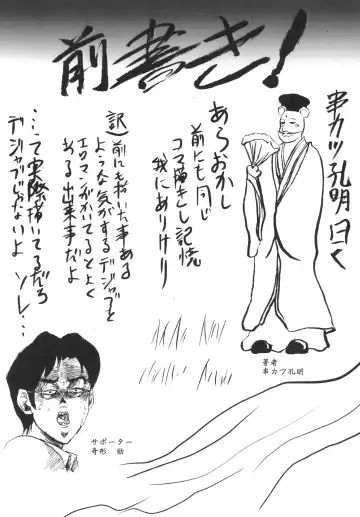 前書き!
串カツ孔明曰く
あらおかし
前にも同じ
コマ描きし記憶
我にありけり
訳)前にも描いた事ある
ような気がするデジャブと
エロマンガかいてるとよく
ある出来事だよ
…って実際描いてるだろ
デジャブじゃないよ ソレ…
著者
串カツ孔明
サポーター
奇形 助